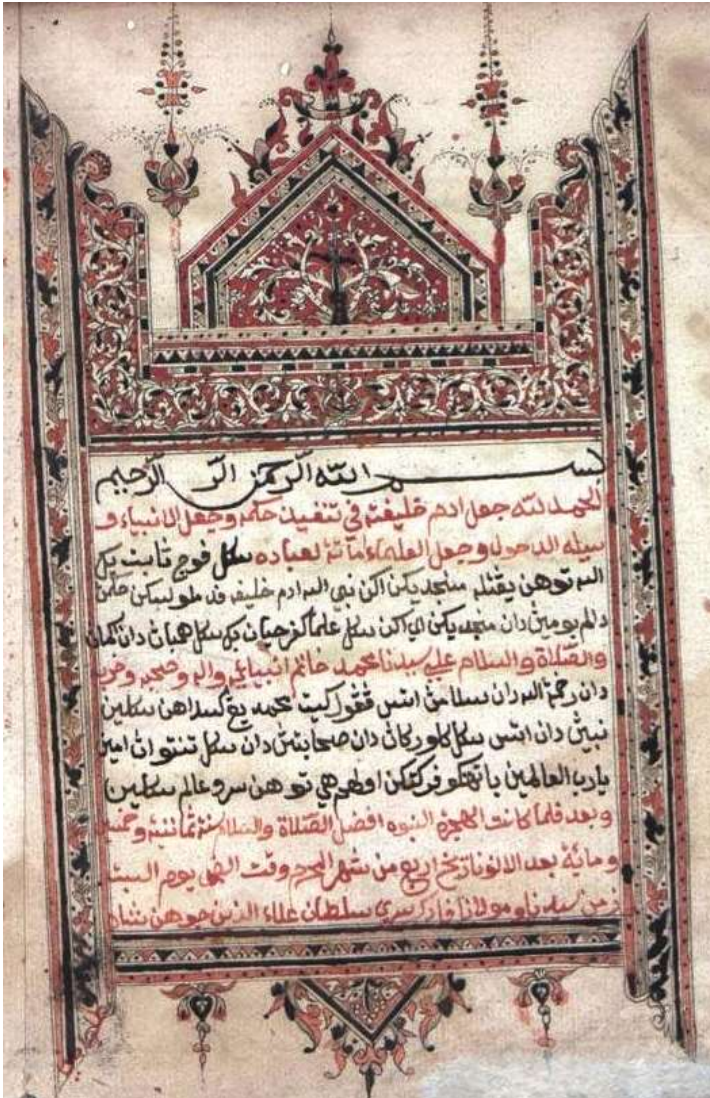 بسم الله الرحمن الر الرحيم
الحمد لله جعل ادم خليفته في تنفيذ حكمه وجعل الانبياء و
سبيله الدحول وجعل العلماء امانة لعباده سكل فوج ثابت بكي
الله توهن يڠتله منجديكن اكن نبي الله ادم خليفه قد ملوليكن حكمن
دالم بومين دان منجديكن اي اكن سكل علما كڤرجيان بكي سكل همبان دان
والصلاة والسلام علي سيدنا محمد خاتم انبيائه واله وصحبه وحزبه
دان رحمة الله دان سلامن اتس ڤڠهولو كيت محمد يڠ كسداهن سكلين
نبين دان اتس سكل كلوركان دان صحابتن دان سكل تنتران امين
يارب العالمين باتهكو فركتكن اولهم هي توهن سرو عالم سكلين
وبعد فلما كانت الهجرة النبوه افضل الصلاة والسلام سنة ثمانية وخمسين
ومائة بعد الالف تاريخ اربع من شهر المحرم وقت الضحى يوم السبت
زمن سيدنا ومولانا فادك سري سلطان علاء الدين جوهن شاه